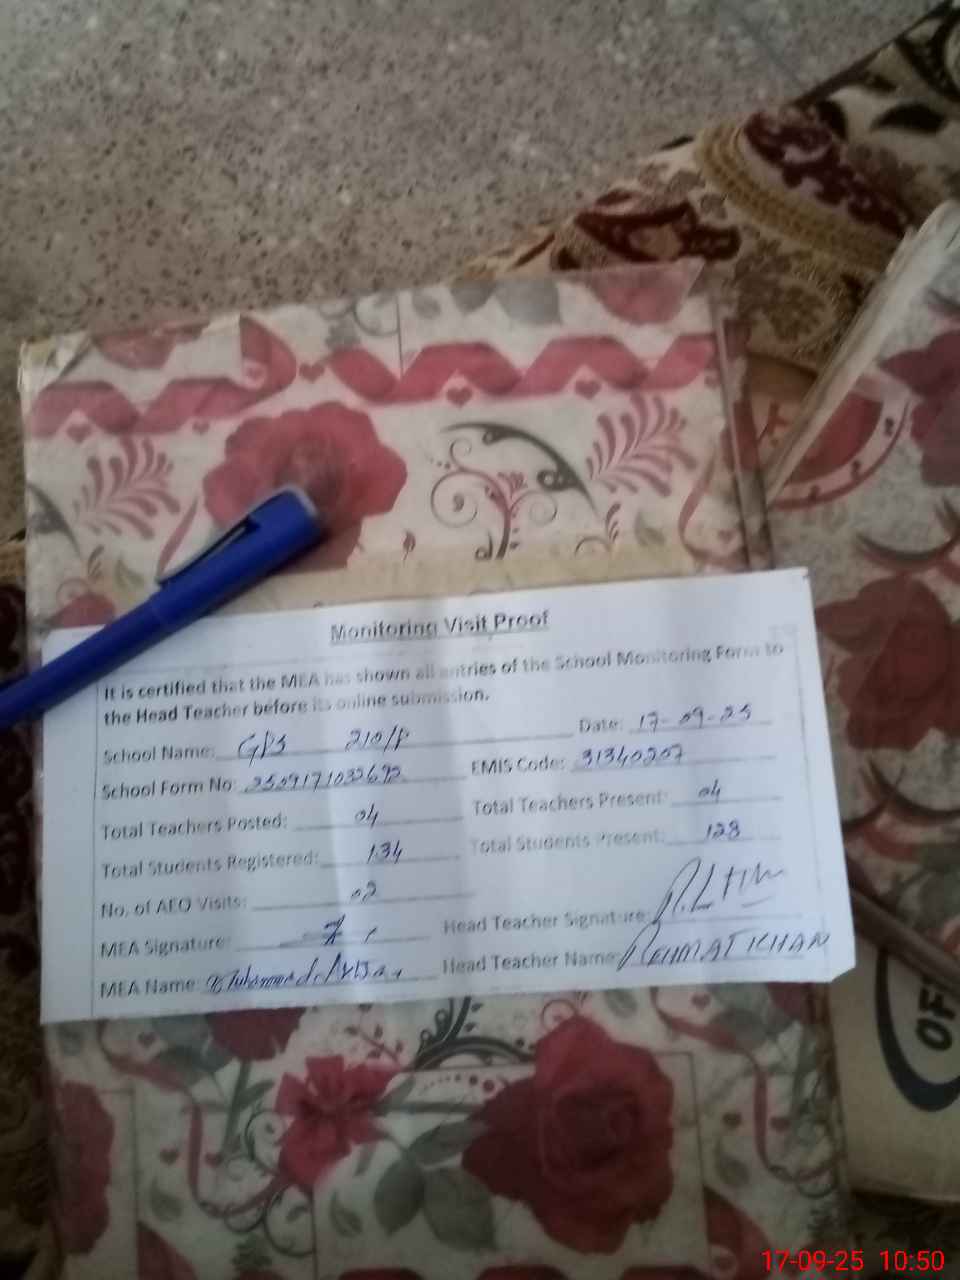 Monitoring Visit Proof
It is certified that the MEA has shown all entries of the School Monitoring Form to
the Head Teacher before its online submission.
School Name: GPS 210/P Date: 17-09-25
School Form No: 2509171032692 EMIS Code: 31340207
Total Teachers Posted: 04 Total Teachers Present: 04
Total Students Registered: 134 Total Students Present: 128
No. of AEO Visits: 02
MEA Signature: Head Teacher Signature:
MEA Name: Muhammad Head Teacher Name: REHMAT KHAN
OF
17-09-25 10:50